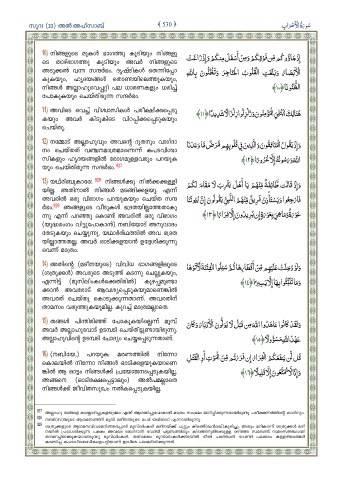 സൂറ: (33) അൽ അഹ്സാബ്
( 530 )
سورة الأحزاب
10) നിങ്ങളുടെ മുകൾ ഭാഗത്തു കൂടിയും നിങ്ങളു
ടെ താഴ്ഭാഗത്തു കൂടിയും അവർ നിങ്ങളുടെ
അടുക്കൽ വന്ന സന്ദർഭം. ദൃഷ്ടികൾ തെന്നിപ്പോ
കുകയും, ഹൃദയങ്ങൾ തൊണ്ടയിലെത്തുകയും,
നിങ്ങൾ അല്ലാഹുവെപ്പറ്റി പല ധാരണകളും ധരിച്ച്
പോകുകയും ചെയ്തിരുന്ന സന്ദർഭം.
إِذْ جَاءُوكُم مِّن فَوْقِكُمْ وَمِنْ أَسْفَلَ مِنكُمْ وَإِذْ زَاغَتِ
الْأَبْصَارُ وَبَلَغَتِ الْقُلُوبُ الْحَنَاجِرَ وَتَظُنُّونَ بِاللَّهِ
الظُّنُونَا ﴿١٠﴾
11) അവിടെ വെച്ച് വിശ്വാസികൾ പരീക്ഷിക്കപ്പെടു
കയും അവർ കിടുകിടെ വിറപ്പിക്കപ്പെടുകയും
ചെയ്തു.
هُنَالِكَ ابْتُلِيَ الْمُؤْمِنُونَ وَزُلْزِلُوا زِلْزَالًا شَدِيدًا ﴿١١﴾
12) നമ്മോട് അല്ലാഹുവും അവന്റെ ദൂതനും വാഗ്ദാ
നം ചെയ്തത് വഞ്ചനമാത്രമാണെന്ന് കപടവിശ്വാ
സികളും ഹൃദയങ്ങളിൽ രോഗമുള്ളവരും പറയുക
യും ചെയ്തിരുന്ന സന്ദർഭം.
وَإِذْ يَقُولُ الْمُنَافِقُونَ وَالَّذِينَ فِي قُلُوبِهِم مَّرَضٌ مَّا وَعَدَنَا
اللَّهُ وَرَسُولُهُ إِلَّا غُرُورًا ﴿١٢﴾
13) യഥ്‌രിബുകാരേ! നിങ്ങൾക്കു നിൽക്കക്കള്ളി
യില്ല. അതിനാൽ നിങ്ങൾ മടങ്ങിക്കളയൂ. എന്ന്
അവരിൽ ഒരു വിഭാഗം പറയുകയും ചെയ്ത സന്ദ
ർഭം. ഞങ്ങളുടെ വീടുകൾ ഭദ്രതയില്ലാത്തതാകു
ന്നു എന്ന് പറഞ്ഞു കൊണ്ട് അവരിൽ ഒരു വിഭാഗം
(യുദ്ധരംഗം വിട്ടുപോകാൻ) നബിയോട് അനുവാദം
തേടുകയും ചെയ്യുന്നു. യഥാർത്ഥത്തിൽ അവ ഭദ്രത
യില്ലാത്തതല്ല. അവർ ഓടിക്കളയാൻ ഉദ്ദേശിക്കുന്നു
വെന്ന് മാത്രം.
وَإِذْ قَالَت طَّائِفَةٌ مِّنْهُمْ يَا أَهْلَ يَثْرِبَ لَا مُقَامَ لَكُمْ
فَارْجِعُوا وَيَسْتَأْذِنُ فَرِيقٌ مِّنْهُمُ النَّبِيَّ يَقُولُونَ إِنَّ بُيُوتَنَا
عَوْرَةٌ وَمَا هِيَ بِعَوْرَةٍ إِن يُرِيدُونَ إِلَّا فِرَارًا ﴿١٣﴾
14) അതിന്റെ (മദീനയുടെ) വിവിധ ഭാഗങ്ങളിലൂടെ
(ശത്രുക്കൾ) അവരുടെ അടുത്ത് കടന്നു ചെല്ലുകയും,
എന്നിട്ട് (മുസ്ലിംകൾക്കെതിരിൽ) കുഴപ്പമുണ്ടാ
ക്കാൻ അവരോട് ആവശ്യപ്പെടുകയുമാണെങ്കിൽ
അവരത് ചെയ്തു കൊടുക്കുന്നതാണ്. അവരതിന്
താമസം വരുത്തുകയുമില്ല. കുറച്ച് മാത്രമല്ലാതെ.
وَلَوْ دُخِلَتْ عَلَيْهِم مِّنْ أَقْطَارِهَا ثُمَّ سُئِلُوا الْفِتْنَةَ لَآتَوْهَا
وَمَا تَلَبَّثُوا بِهَا إِلَّا يَسِيرًا ﴿١٤﴾
15) തങ്ങൾ പിന്തിരിഞ്ഞ് പോകുകയില്ലെന്ന് മുമ്പ്
അവർ അല്ലാഹുവോട് ഉടമ്പടി ചെയ്തിട്ടുണ്ടായിരുന്നു.
അല്ലാഹുവിന്റെ ഉടമ്പടി ചോദ്യം ചെയ്യപ്പെടുന്നതാണ്.
وَلَقَدْ كَانُوا عَاهَدُوا اللَّهَ مِن قَبْلُ لَا يُوَلُّونَ الْأَدْبَارَ وَكَانَ
عَهْدُ اللَّهِ مَسْئُولًا ﴿١٥﴾
16) (നബിയേ,) പറയുക: മരണത്തിൽ നിന്നോ
കൊലയിൽ നിന്നോ നിങ്ങൾ ഓടിക്കളയുകയാണെ
ങ്കിൽ ആ ഓട്ടം നിങ്ങൾക്ക് പ്രയോജനപ്പെടുകയില്ല.
അങ്ങനെ (ഓടിരക്ഷപ്പെട്ടാലും) അൽപമല്ലാതെ
നിങ്ങൾക്ക് ജീവിതസുഖം നൽകപ്പെടുകയില്ല.
قُل لَّن يَنفَعَكُمُ الْفِرَارُ إِن فَرَرْتُم مِّنَ الْمَوْتِ أَوِ الْقَتْلِ
وَإِذًا لَّا تُمَتَّعُونَ إِلَّا قَلِيلًا ﴿١٦﴾